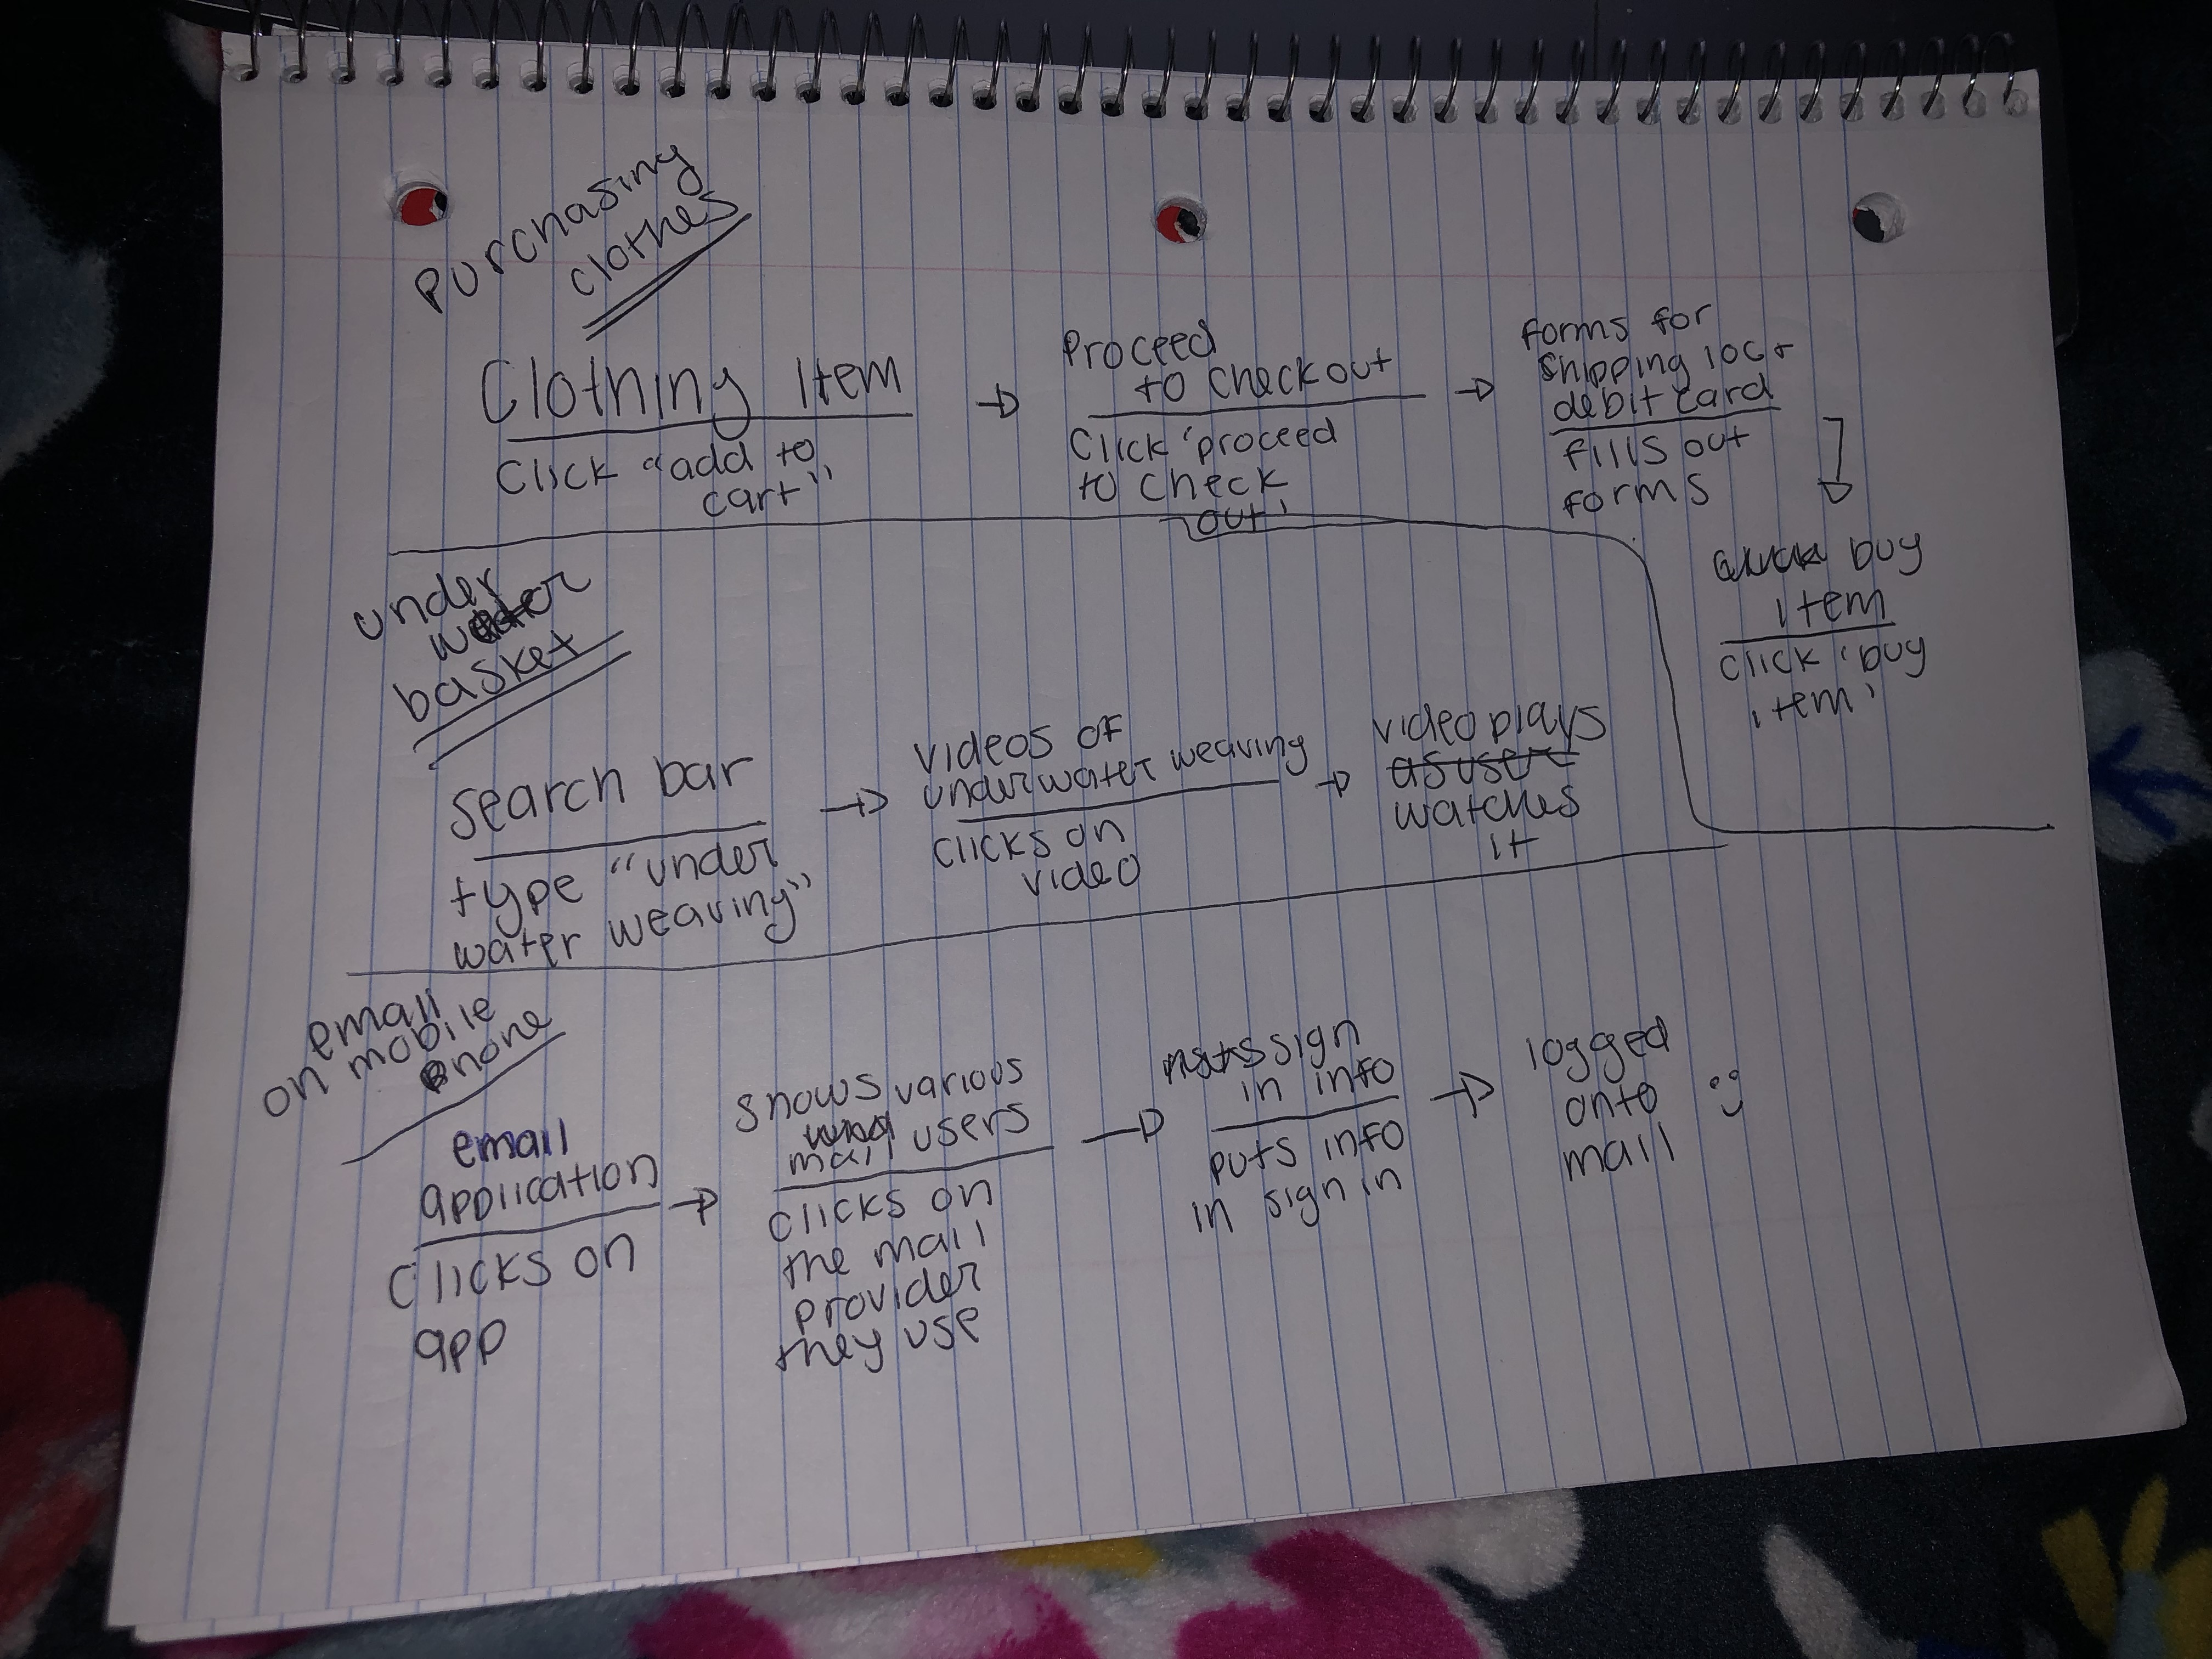 purchasing
clothes
Clothing Item
Click "add to
cart"
Proceed
to checkout
Click 'proceed
to check
out'
forms for
shipping loc +
debit card
fills out
forms
buy
item
click 'buy
item'
under
water
basket
search bar
type "under
water weaving"
videos of
underwater weaving
clicks on
video
video plays
as user
watches
it
email
on mobile
phone
email
application
clicks on
app
shows various
mail users
clicks on
the mail
provider
they use
sign
in info
puts info
in sign in
logged
onto
mail